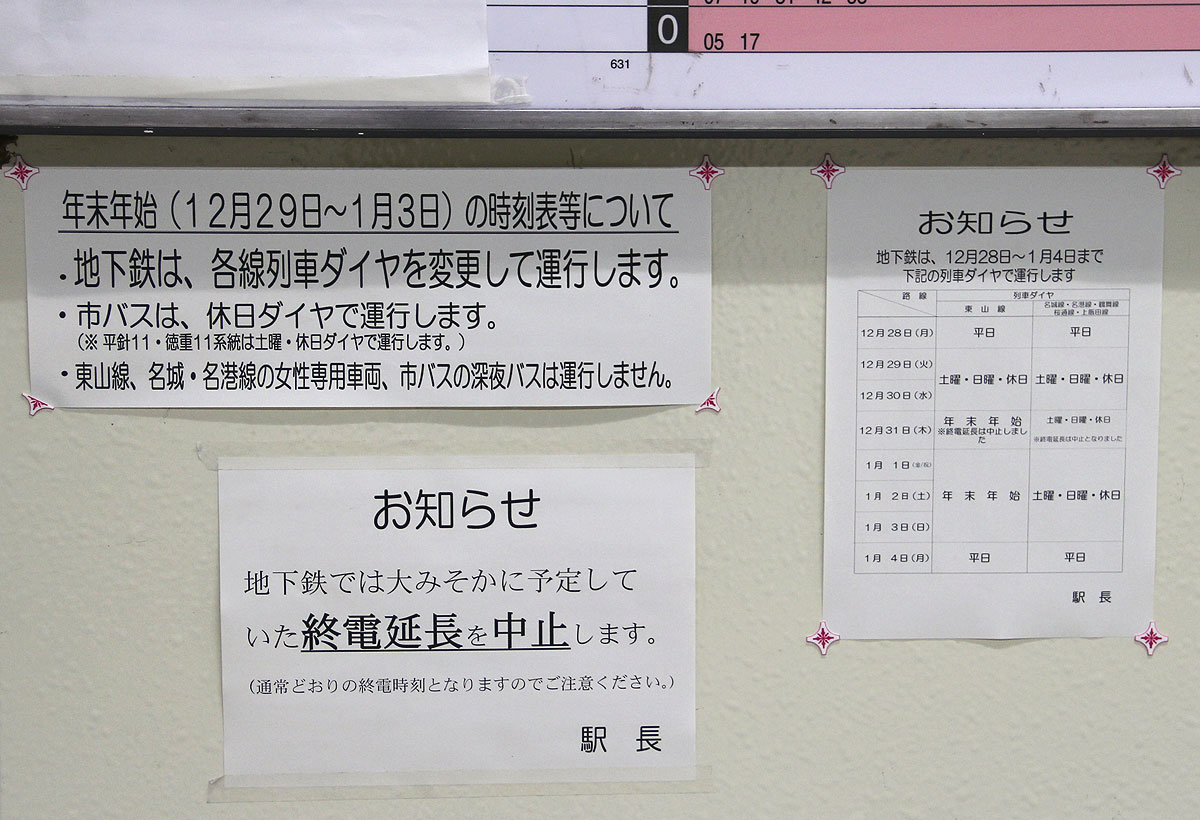 0
05 17
631
年末年始（12月29日～1月3日）の時刻表等について
・地下鉄は、各線列車ダイヤを変更して運行します。
・市バスは、休日ダイヤで運行します。
（※ 平針11・徳重11系統は土曜・休日ダイヤで運行します。）
・東山線、名城・名港線の女性専用車両、市バスの深夜バスは運行しません。
お知らせ
地下鉄では大みそかに予定して
いた終電延長を中止します。
（通常どおりの終電時刻となりますのでご注意ください。）
駅 長
お知らせ
地下鉄は、12月28日～1月4日まで
下記の列車ダイヤで運行します
路 線 列車ダイヤ
東 山 線 名城線・名港線・鶴舞線
桜通線・上飯田線
12月28日(月) 平日 平日
12月29日(火)
土曜・日曜・休日 土曜・日曜・休日
12月30日(水)
12月31日(木) 年 末 年 始 土曜・日曜・休日
※終電延長は中止しまし
た
※終電延長は中止となりました
1月 1日(金/祝)
1月 2日(土) 年 末 年 始 土曜・日曜・休日
1月 3日(日)
1月 4日(月) 平日 平日
駅 長